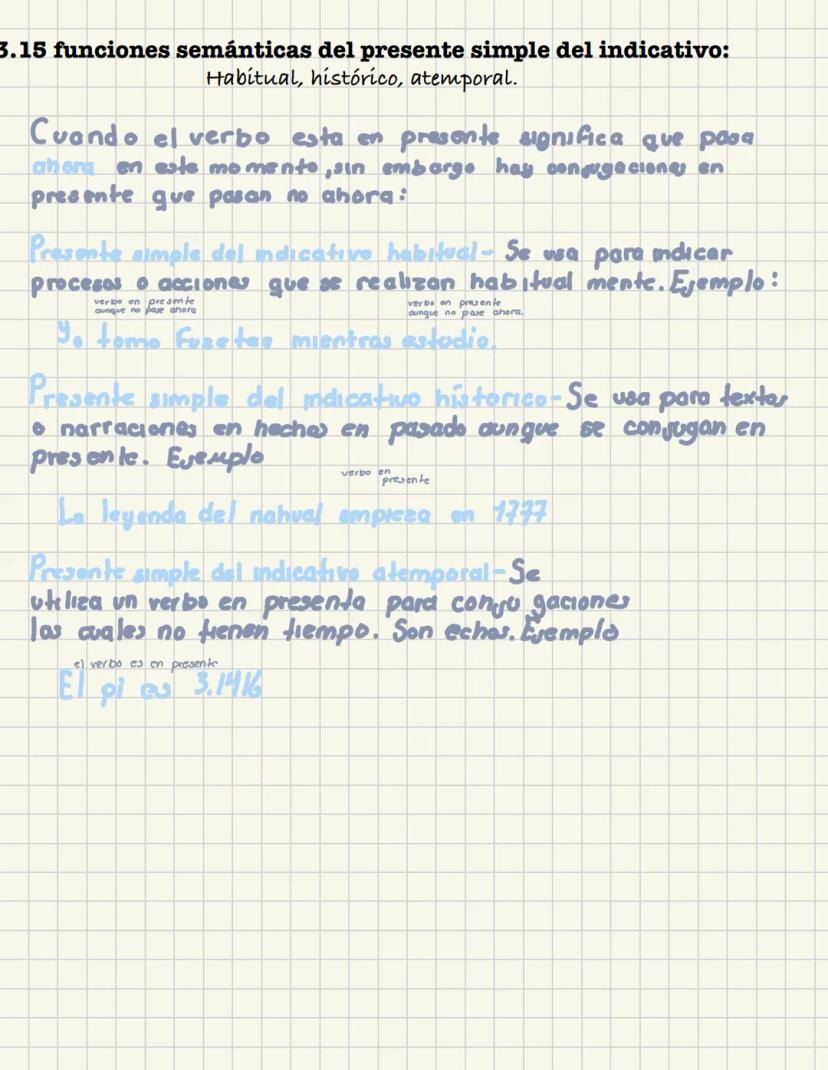 3.15 funciones semánticas del presente simple del indicativo:
Habitual, histórico, atemporal.
Cuando el verbo esta en presente significa que pasa
ahora en este momento, sin embargo hay conjugaciones en
presente que pasan no ahora:
Presente simple del indicativo habitual- Se usa para indicar
procesos o acciones que se realizan habitual mente. Ejemplo:
verbo en presente
aunque no pase ahora
verbo en presente
aunque no pase ahora.
Yo tomo Fuzetea mientras estudio.
Presente simple del indicativo histórico- Se usa para textos
o narraciones en hechos en pasado aunque se conjugan en
presente. Ejemplo
verbo en
presente
La leyenda del nahual empieza en 1777
Presente simple del indicativo atemporal- Se
utiliza un verbo en presenta para conju gaciones
las cuales no tienen tiempo. Son echos. Ejemplo
el verbo es en presente
El pi es 3.1416